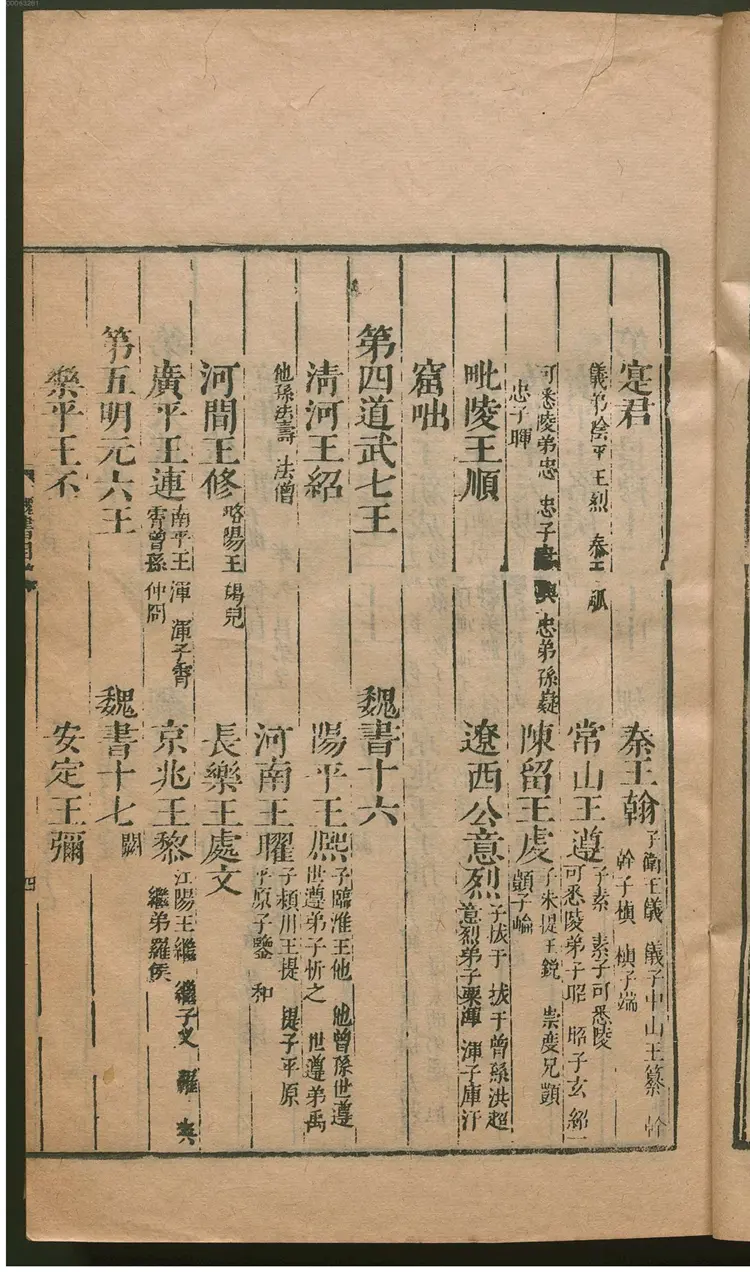 寔君 秦王翰 子衛王儀 儀子中山王纂 幹
幹子楨 楨子端
儀弟陰平王烈 秦王觚 常山王遵 子素 素子可悉陵
可悉陵弟子昭 昭子玄 紹
可悉陵弟忠 忠子 興 忠弟孫嶷 陳留王虔 子朱提王銳 崇虔兄顗
忠子暉 顗子崘
毗陵王順 遼西公意烈 子拔于 拔于曾孫洪超
意烈弟子粟磾 渾子庫汗
窟咄
第四道武七王 魏書十六
清河王紹 陽平王熈 子臨淮王他 他曾孫世遵
世遵弟子忻之 世遵弟禹
他孫法壽 法僧 河南王曜 子頛川王提 提子平原
平原子鑒 和
河間王修 略陽王 羯兒 長樂王處文
廣平王連 南平王 渾 渾子霄 京兆王黎 江陽王繼 繼子乂 羅 夾
霄曾孫 仲冏 繼弟羅侯
第五明元六王 魏書十七 闕
樂平王丕 安定王彌
魏書目
四
00063261